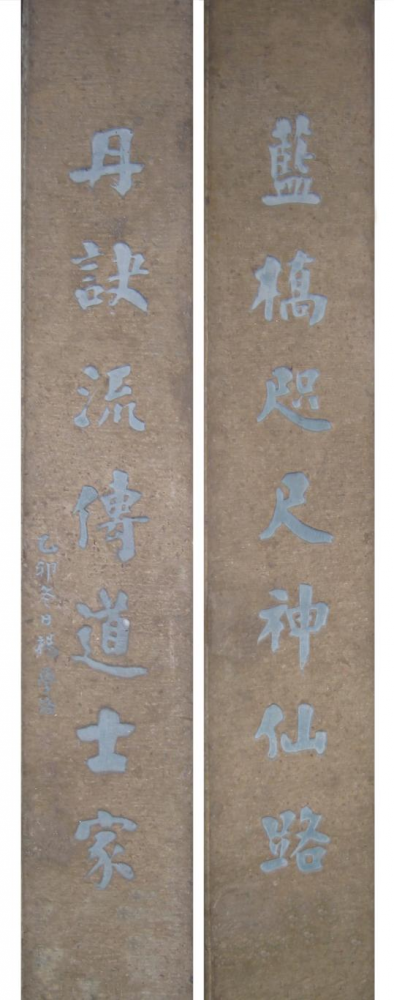 藍橋咫尺神仙路
丹訣流傳道士家
乙卯冬日楊